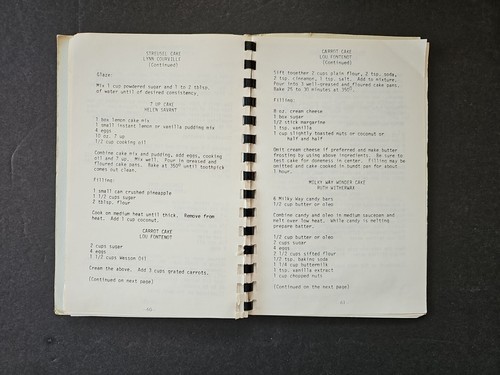 STREUSEL CAKE
LYNN COURVILLE
(Continued)
Glaze:
Mix 1 cup powdered sugar and 1 to 2 tblsp.
of water until of desired consistency.
7 UP CAKE
HELEN SAVANT
1 box lemon cake mix
1 small instant lemon or vanilla pudding mix
4 eggs
10 oz. 7 up
1/2 cup cooking oil
Combine cake mix and pudding, add eggs, cooking
oil and 7 up. Mix well. Pour in greased and
floured cake pans. Bake at 350° until toothpick
comes out clean.
Filling:
1 small can crushed pineapple
1 1/2 cups sugar
2 tblsp. flour
Cook on medium heat until thick. Remove from
heat. Add 1 cup coconut.
CARROT CAKE
LOU FONTENOT
2 cups sugar
4 eggs
1 1/2 cups Wesson Oil
Cream the above. Add 3 cups grated carrots.
(Continued on the next page)
CARROT CAKE
LOU FONTENOT
(Continued)
Sift together 2 cups plain flour, 2 tsp. soda,
2 tsp. cinnamon, 1 tsp. salt. Add to mixture.
Pour into 3 well-greased and floured cake pans.
Bake 25 to 30 minutes at 350°.
Filling:
8 oz. cream cheese
1 box sugar
1/2 stick margarine
1 tsp. vanilla
1 cup slightly toasted nuts or coconut or
half and half
Omit cream cheese if preferred and make butter
frosting by using above ingredients. Be sure to
test cake for doneness in center. Filling may be
omitted and cake cooked in bundt pan for about
1 hour.
MILKY WAY WONDER CAKE
RUTH
6 Milky Way candy bars
1/2 cup butter or oleo
Combine candy and oleo in medium saucepan and
melt over low heat. While candy is melting
prepare batter.
1/2 cup butter or oleo
2 cups sugar
4 eggs
2 1/2 cups sifted flour
1/2 tsp. baking soda
1 1/4 cup buttermilk
1 tsp. vanilla extract
1 cup chopped nuts
(Continued on the next page)